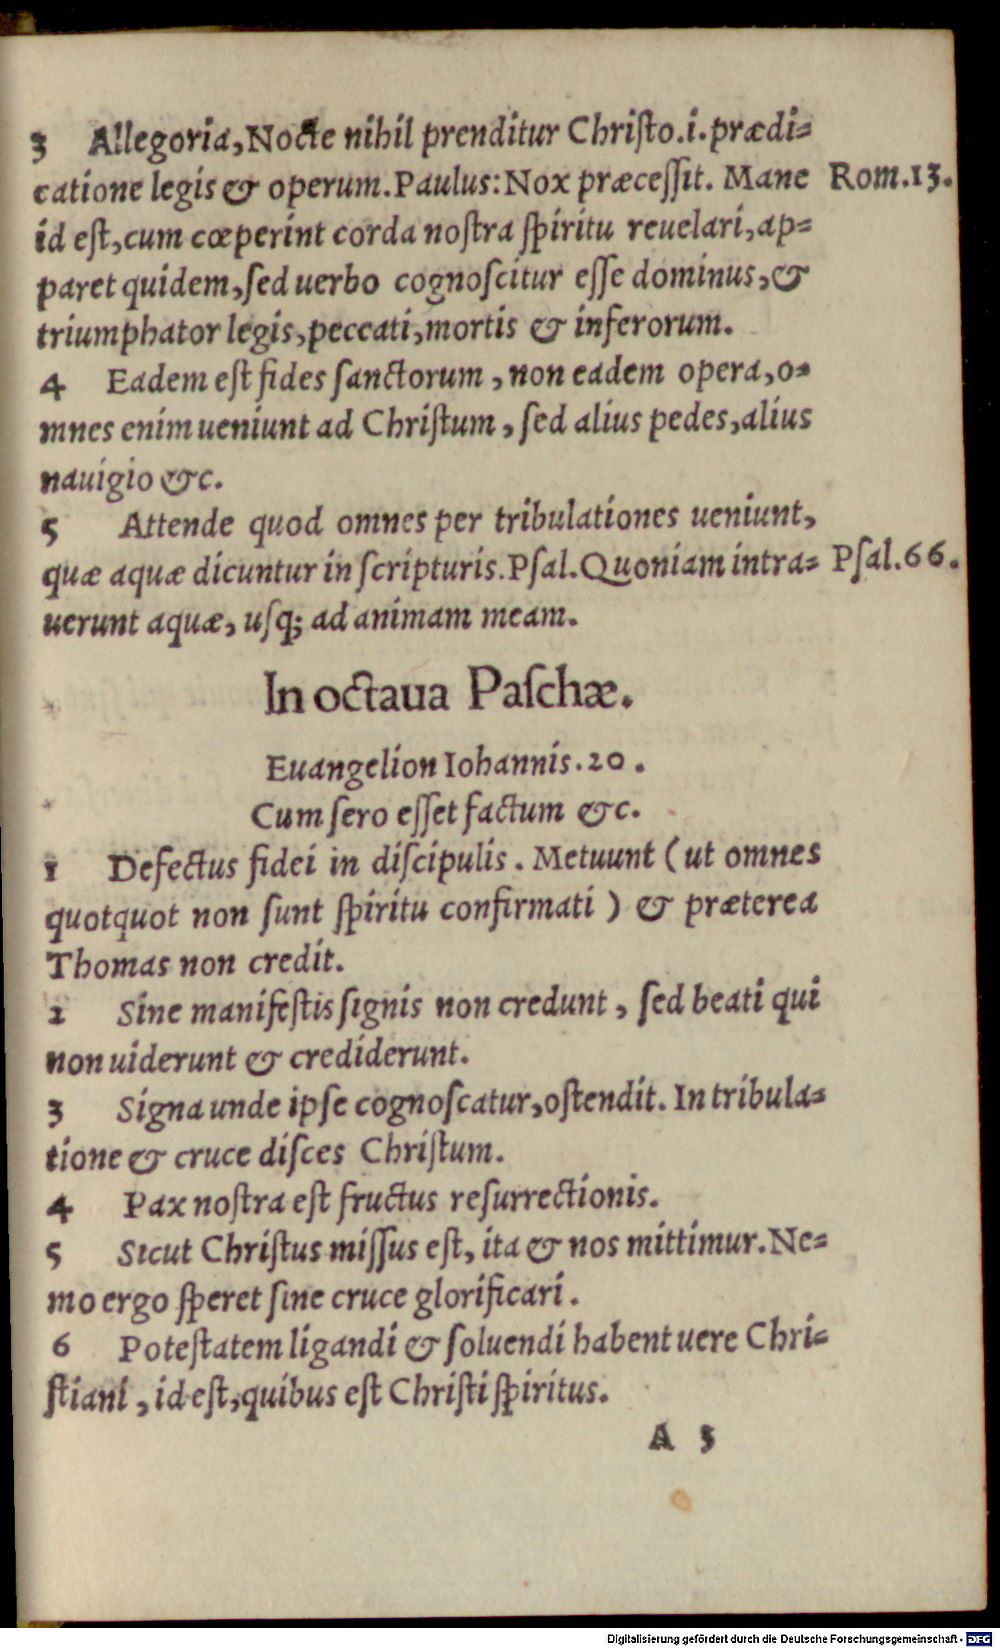 3 Allegoria, Nocte nihil prenditur Christo.i.prædi-
catione legis & operum. Paulus: Nox præcessit. Mane Rom.13.
id est, cum cœperint corda nostra spiritu reuelari, ap-
paret quidem, sed uerbo cognoscitur esse dominus, &
triumphator legis, peccati, mortis & inferorum.
4 Eadem est fides sanctorum, non eadem opera, o-
mnes enim ueniunt ad Christum, sed alius pedes, alius
nauigio &c.
5 Attende quod omnes per tribulationes ueniunt,
quæ aquæ dicuntur in scripturis. Psal. Quoniam intra- Psal.66.
uerunt aquæ, usq; ad animam meam.
In octaua Paschæ.
Euangelion Iohannis. 20.
Cum sero esset factum &c.
1 Defectus fidei in discipulis. Metuunt (ut omnes
quotquot non sunt spiritu confirmati) & præterea
Thomas non credit.
2 Sine manifestis signis non credunt, sed beati qui
non uiderunt & crediderunt.
3 Signa unde ipse cognoscatur, ostendit. In tribula-
tione & cruce disces Christum.
4 Pax nostra est fructus resurrectionis.
5 Sicut Christus missus est, ita & nos mittimur. Ne-
mo ergo speret sine cruce glorificari.
6 Potestatem ligandi & soluendi habent uere Chri-
stiani, id est, quibus est Christi spiritus.
A 5
Digitalisierung gefördert durch die Deutsche Forschungsgemeinschaft - DFG